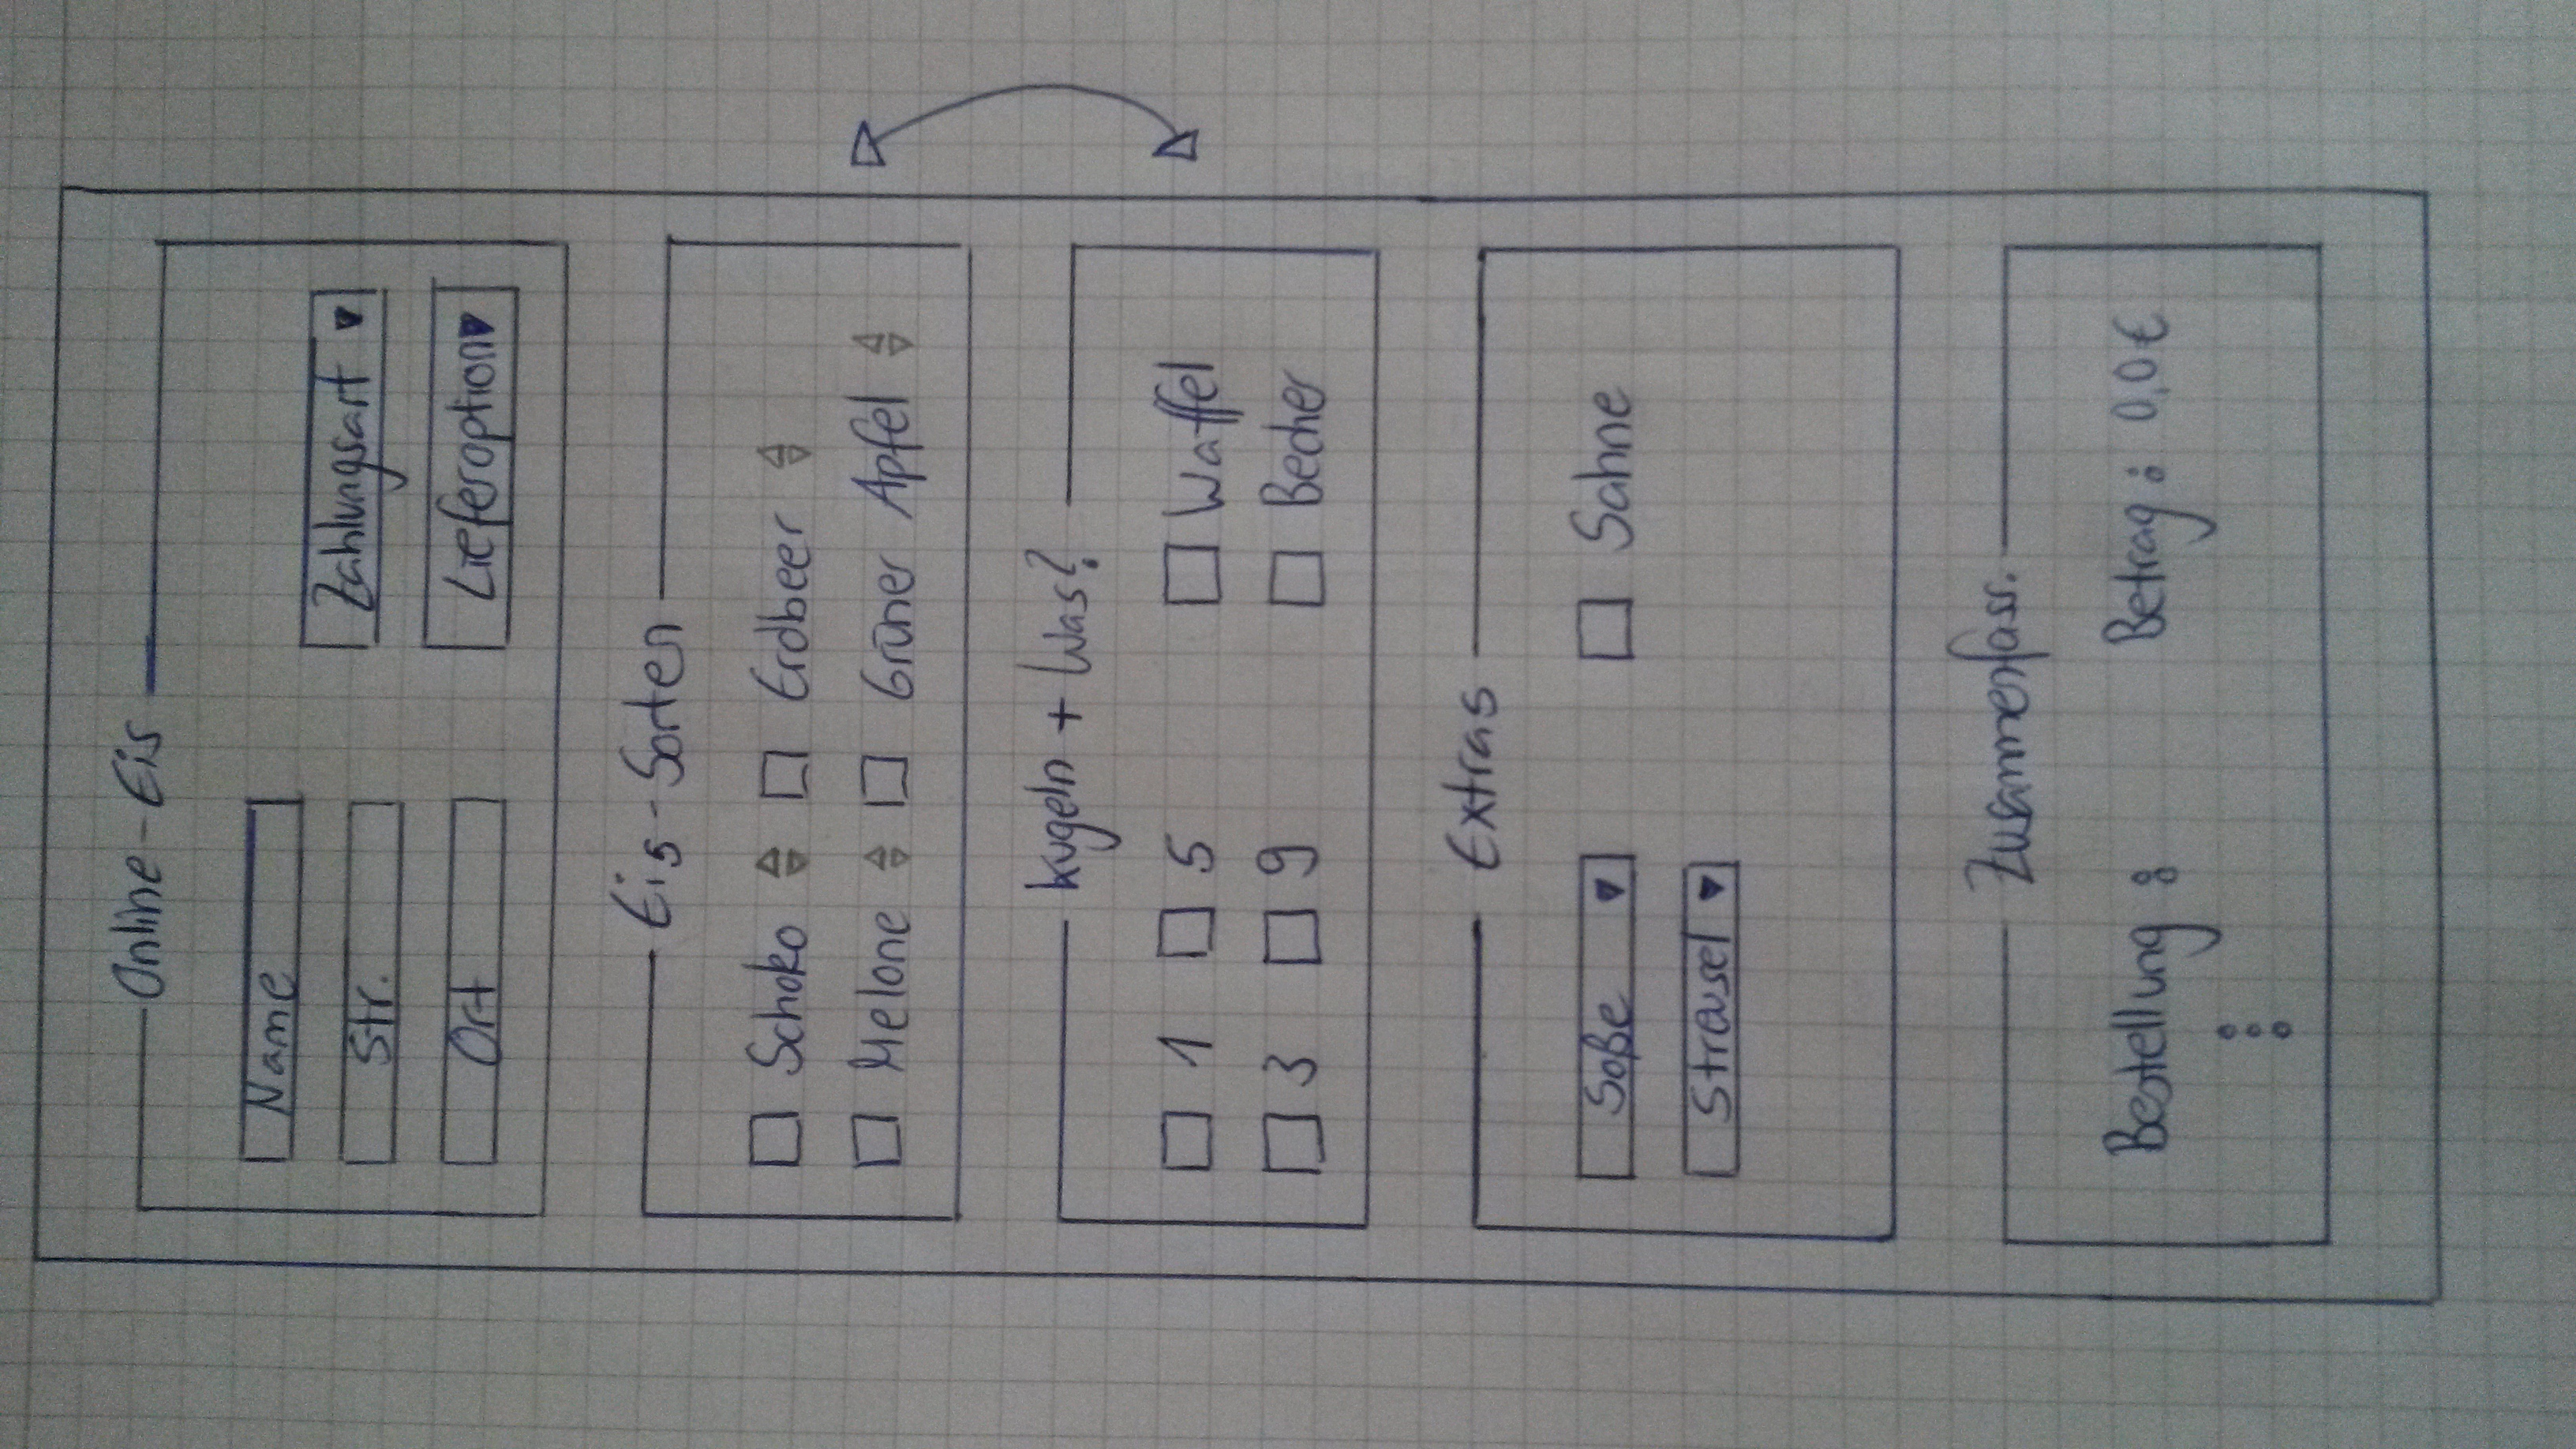 Online-Eis
Name
Str.
Ort
Zahlungsart
Lieferoption
Eis-Sorten
Schoko Erdbeer
Melone Grüner Apfel
Kugeln + Was?
1 5 Waffel
3 9 Becher
Extras
Soße Sahne
Streusel
Zusammenfass.
Bestellung : Betrag : 0,0€